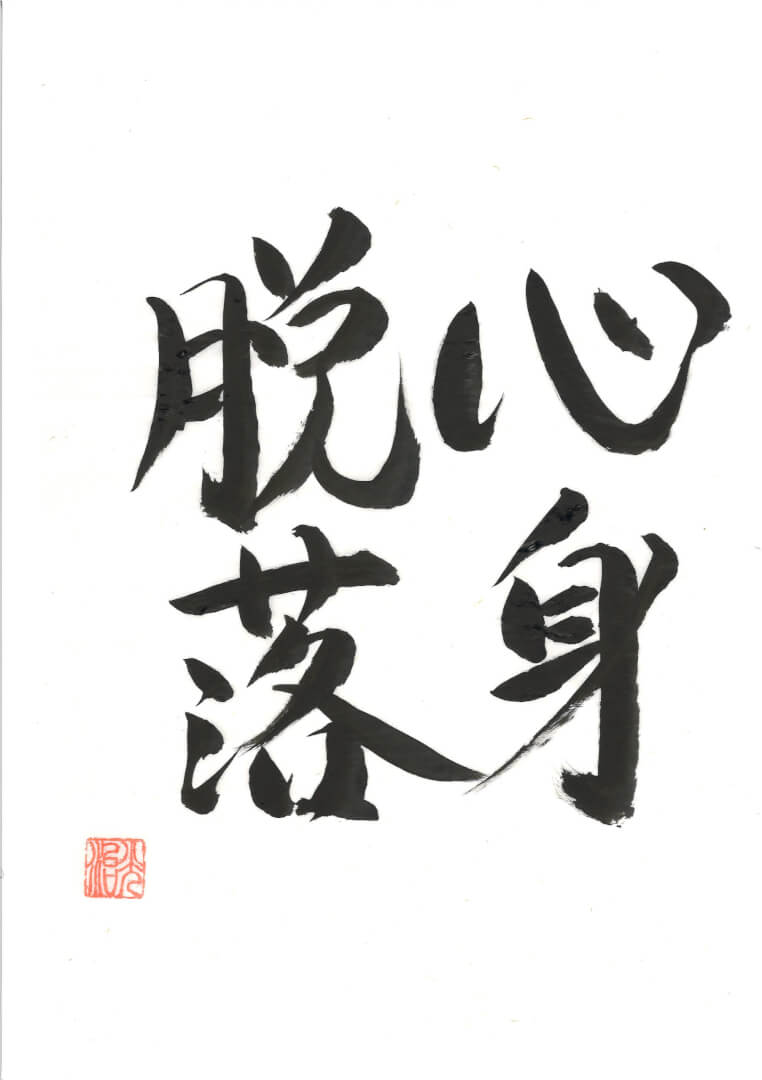 心身
脱落